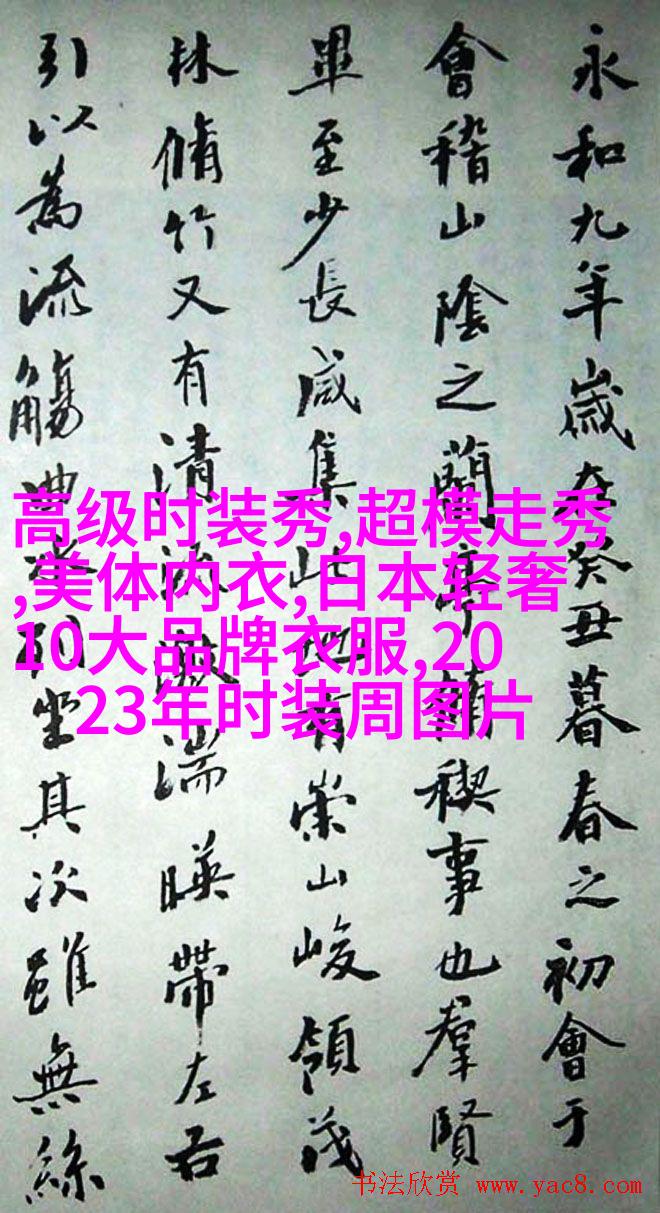 永和九年歲在癸丑暮春之初會于
會稽山陰之蘭亭脩禊事也羣賢
畢至少長咸集此地有崇山峻領茂
林脩竹又有清流激湍暎帶左右
引以為流觴曲水列坐其次雖無絲
高级时装秀,超模走秀
,美体内衣,日本轻奢
10大品牌衣服,20
23年时装周图片
书法欣赏 www.yac8.com